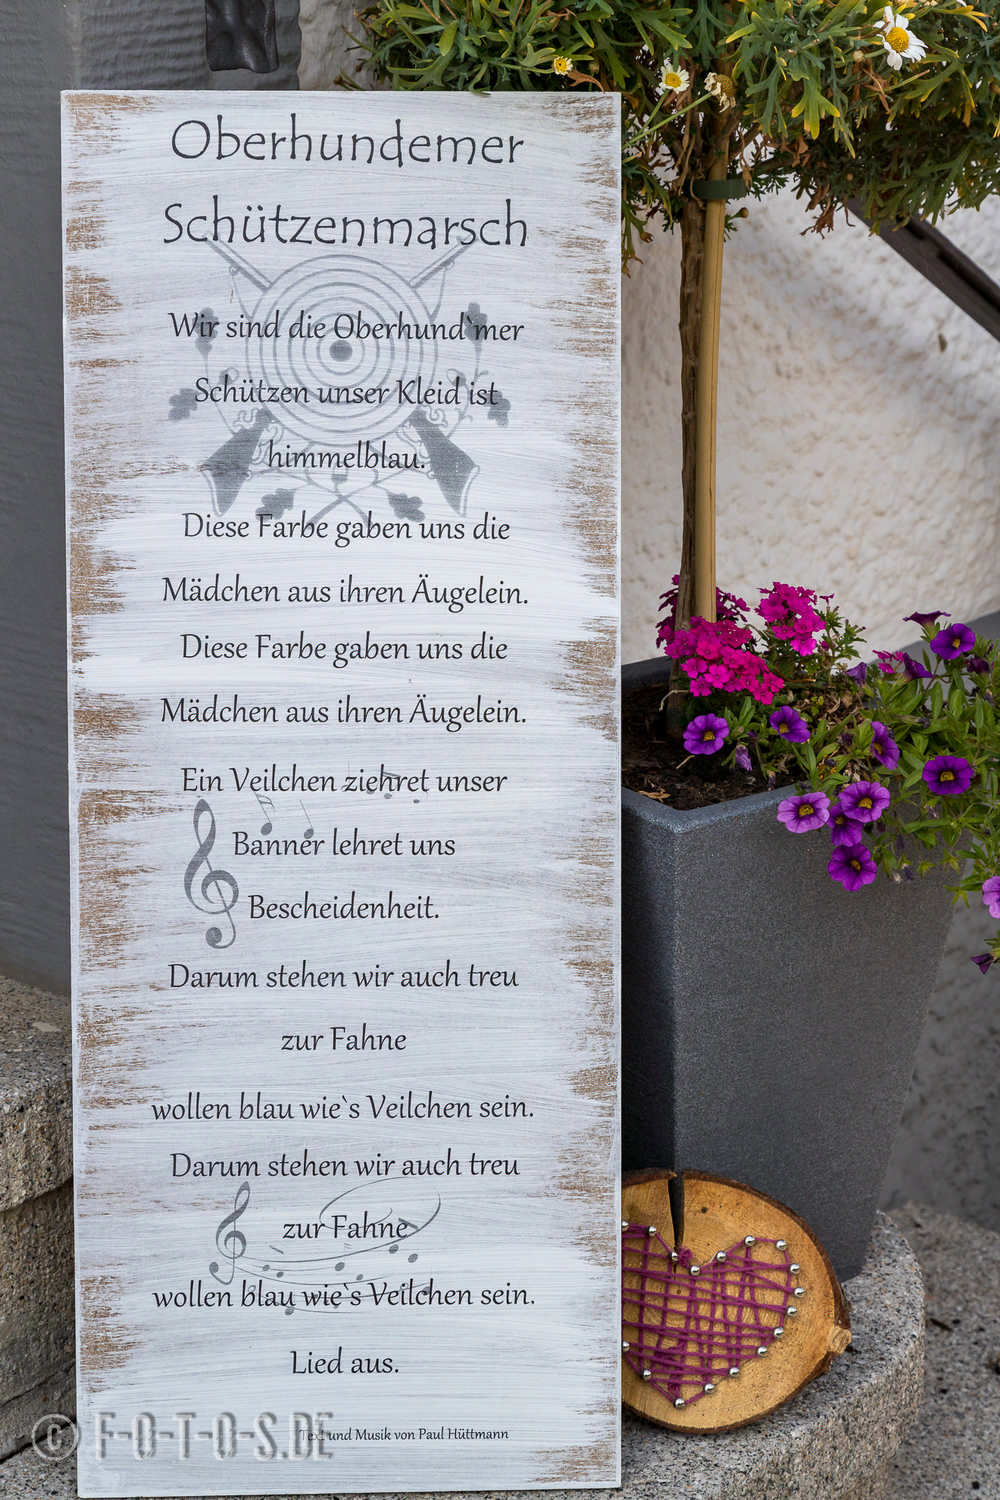 Oberhundemer
Schützenmarsch
Wir sind die Oberhund`mer
Schützen unser Kleid ist
himmelblau.
Diese Farbe gaben uns die
Mädchen aus ihren Äugelein.
Diese Farbe gaben uns die
Mädchen aus ihren Äugelein.
Ein Veilchen ziehret unser
Banner lehret uns
Bescheidenheit.
Darum stehen wir auch treu
zur Fahne
wollen blau wie`s Veilchen sein.
Darum stehen wir auch treu
zur Fahne
wollen blau wie`s Veilchen sein.
Lied aus.
Text und Musik von Paul Hüttmann
© F-O-T-O-S.DE